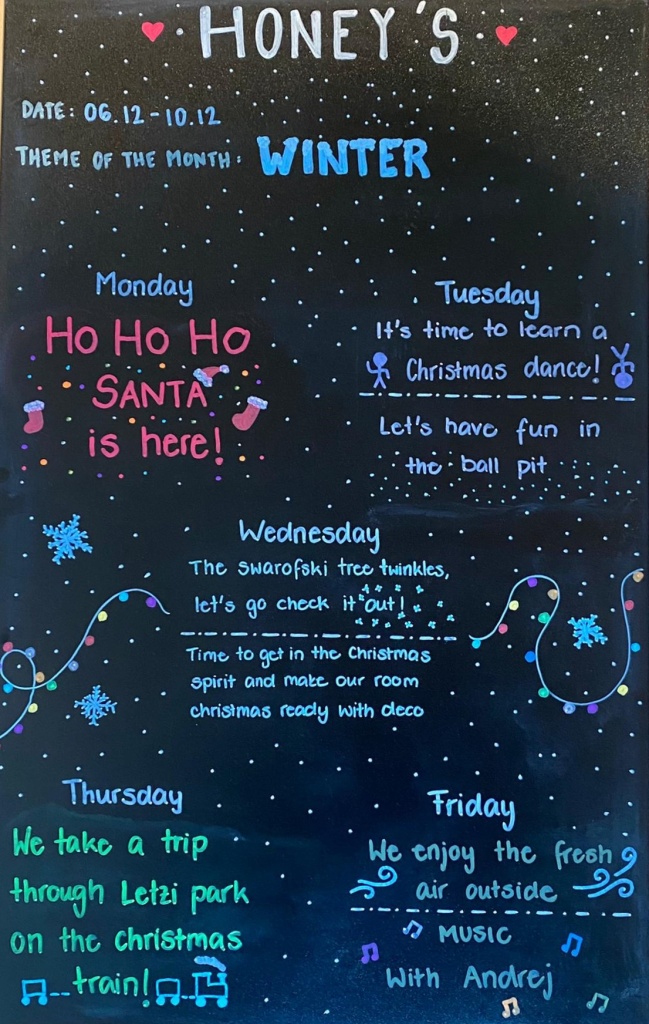 HONEY'S
DATE: 06.12-10.12
THEME OF THE MONTH: WINTER
Monday
Ho Ho Ho
SANTA
is here!
Tuesday
It's time to learn a
Christmas dance!
Let's have fun in
the ball pit
Wednesday
The Swarofski tree twinkles,
let's go check it out!
Time to get in the Christmas
spirit and make our room
christmas ready with deco
Thursday
We take a trip
through Letzi park
on the christmas
train!
Friday
We enjoy the fresh
air outside
MUSIC
With Andrej